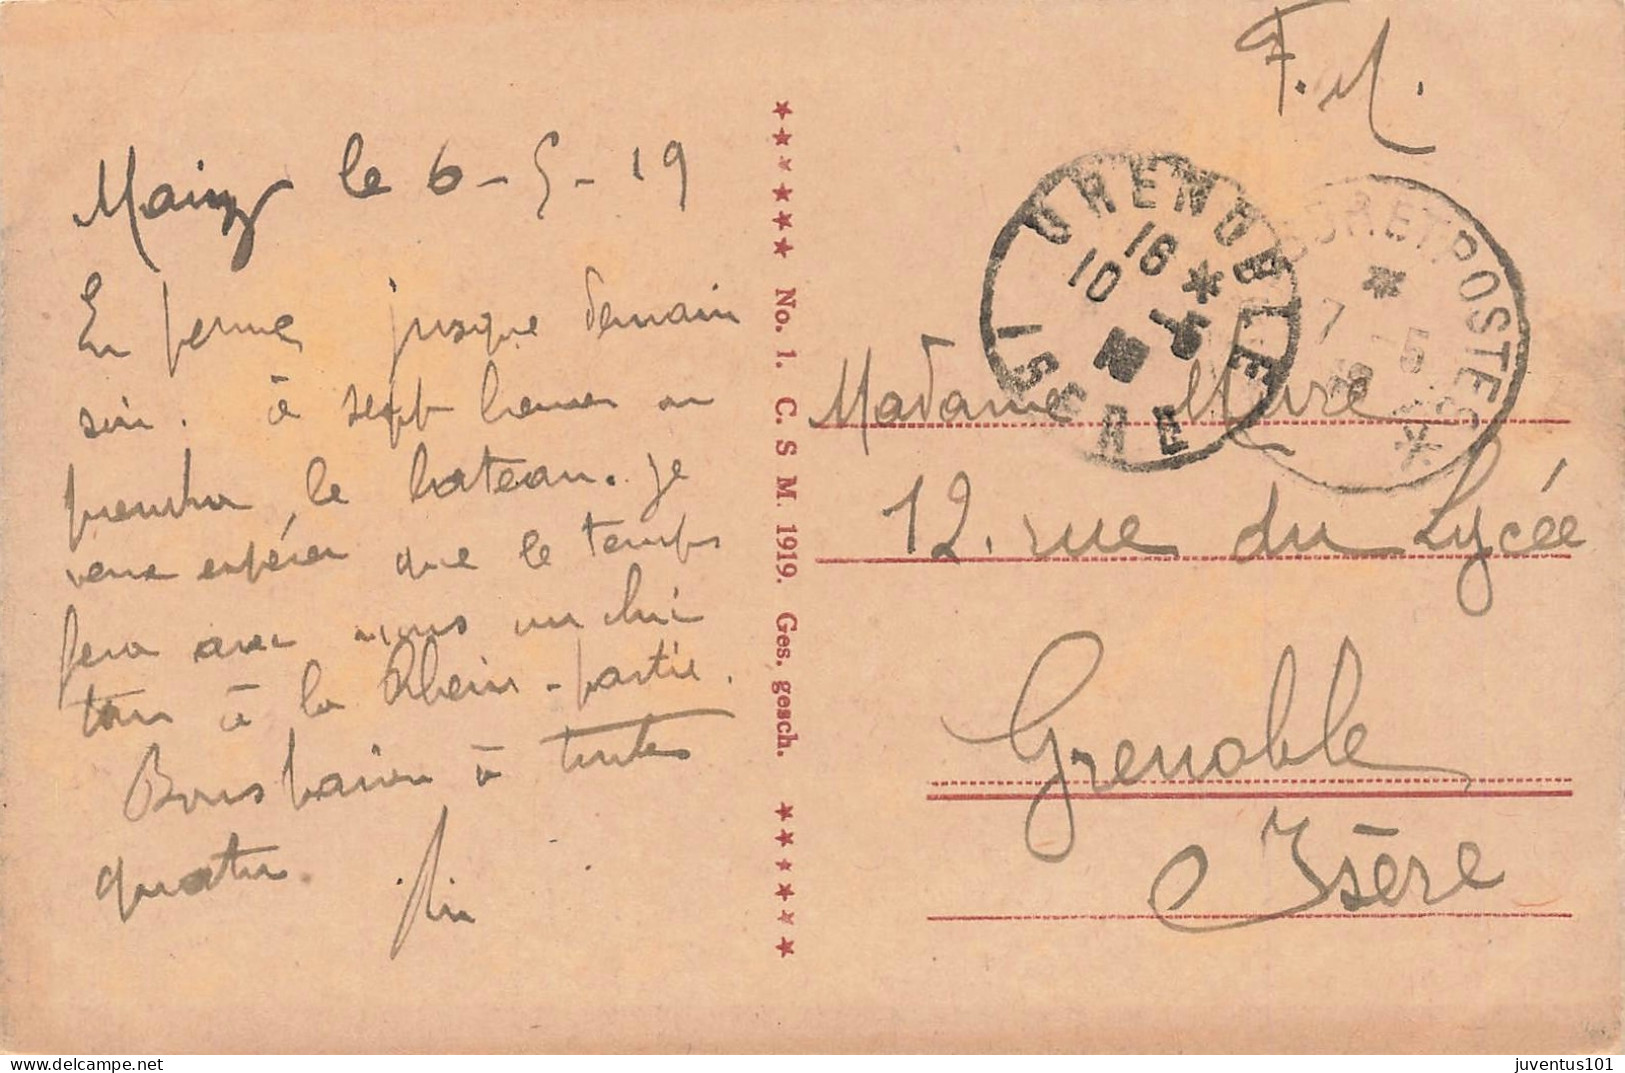 F. M.
Mainz le 6-5-19
En perme jusque demain
soir. à sept heures on
prendra le bateau. Je
veux espérer que le temps
fera avec nous un
à la Rhein-partie.
Bons baisers à toutes
quatre
No. 1. C. S. M. 1919. Ges. gesch.
GRENOBLE
16 *
10 - 5
19
ISERE
POSTES
*
7 - 5
19
*
Madame Mure
12. rue du Lycée
Grenoble
Isère
juventus101